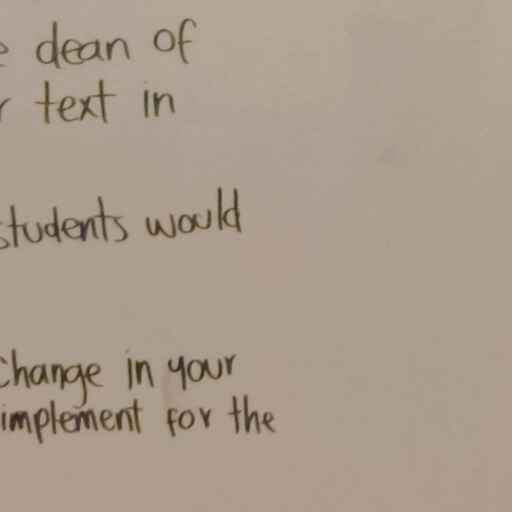 dean of
text in
students would
change in your
implement for the